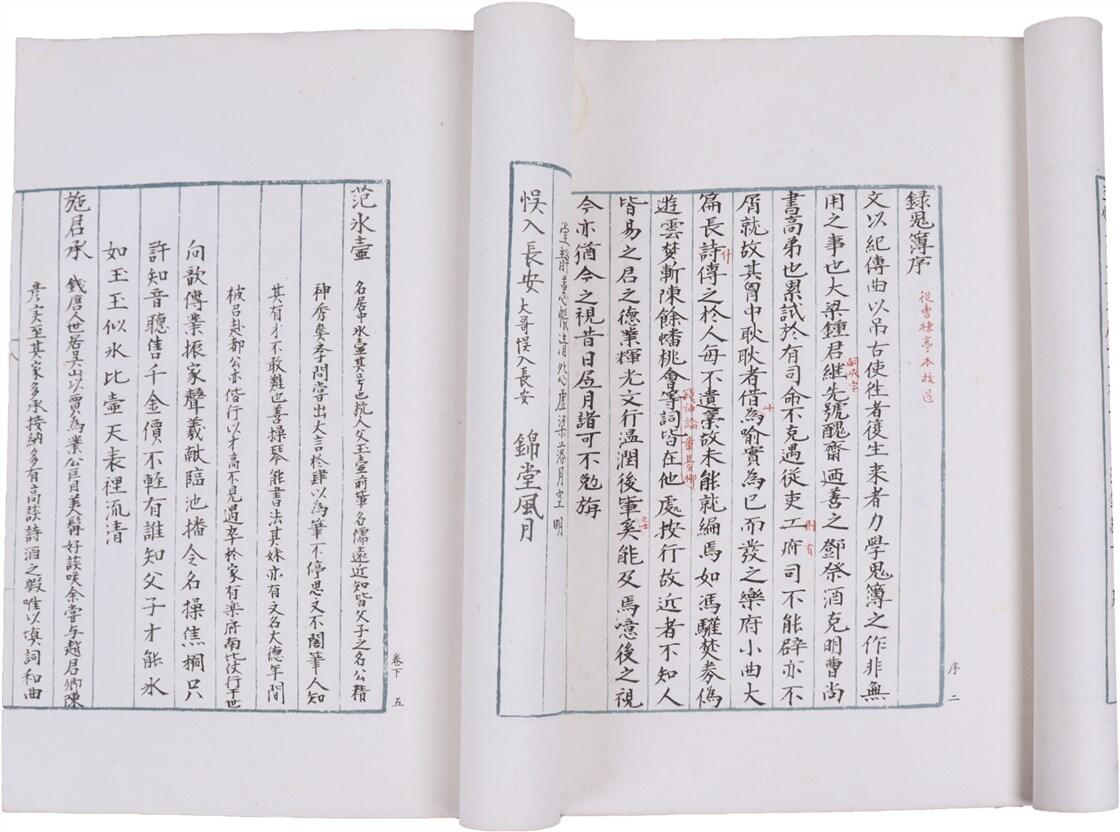 録鬼簿序 從曹楝亭本校過
文以紀傳曲以吊古使徃者復生来者力學鬼簿之作非無
用之事也大梁鍾君継先號醜齋廼善之鄧祭酒克明曹尚
嗣成字
書高弟也累試於有司命不克遇從吏工府司不能辟亦不
則有
屑就故其胷中耿耿者借為喻實為已而發之樂府小曲大
篇長詩傳之於人每不遺藁故未能就編焉如馮驩焚券偽
什
遊雲夢斬陳餘蟠桃會等詞皆在他處按行故近者不知人
錢神論 章臺柳
皆易之君之德業輝光文行温潤後軰奚能及焉噫後之視
今亦猶今之視昔日居月諸可不勉旃
序 二
虛梁落月空明
悞入長安 大哥悞入長安 錦堂風月
范氷壺 名居中氷壺其号也杭人父玉壺前軰名儒遠近知皆父子之名公精
神秀異李問嘗出大言於肆以為筆不停思文不閣筆人知
其有才不敢難也善操琴能書法其妹亦有文名大德年間
被召赴都公亦偕行以才高不見遇卒於家有楽府南北伩行于世
向歆傳業振家聲羲献臨池播令名操焦桐只
許知音聽售千金價不軽有誰知父子才能氷
如玉玉似氷比壺天表裡流清
施君承 錢唐人世居吴山以賈為業公臣目美髯好談咲余甞与趙君卿陳
彦实至其家多承接納多有高談詩酒之暇唯以填詞和曲
卷下 五